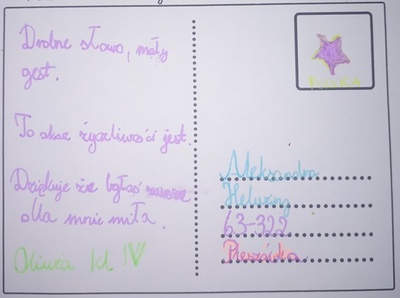 Drobne słowo, mały
gest.
To akcr życzliwości jest.
Dziękuje że byłaś
dla mnie miła.
Oliwia kl IV
Aleksandra
63-322